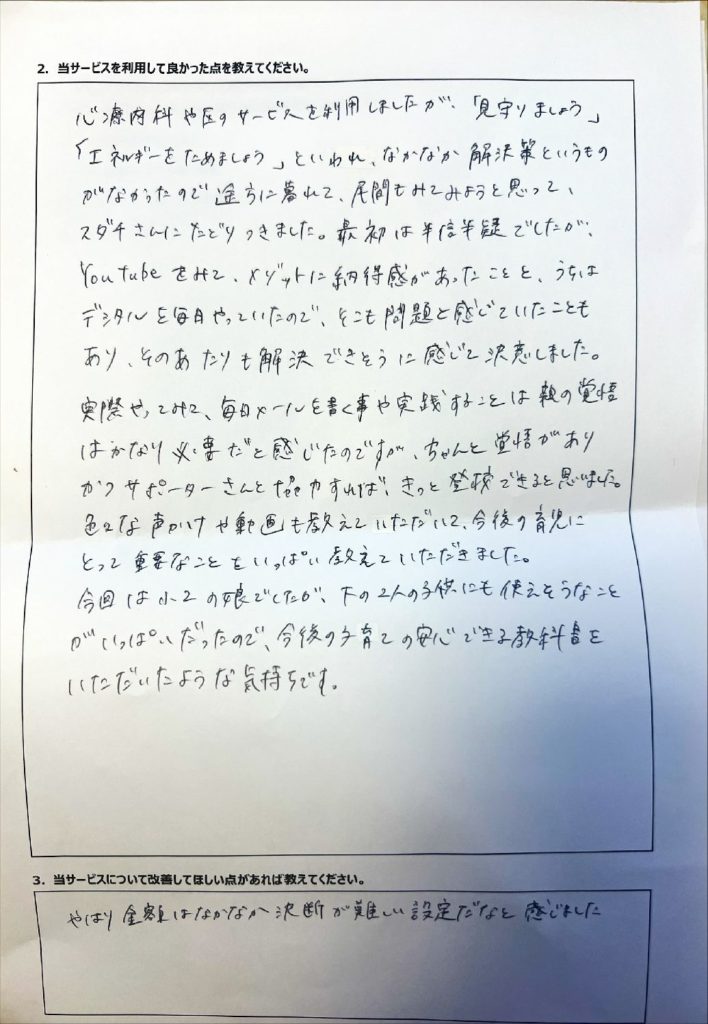 2. 当サービスを利用して良かった点を教えてください。
心療内科や区のサービスを利用しましたが、「見守りましょう」
「エネルギーをためましょう」といわれ、なかなか解決策というもの
がなかったので途方に暮れて、民間もみてみようと思って、
スダチさんにたどりつきました。最初は半信半疑でしたが、
YouTubeをみて、メゾットに納得感があったことと、うちは
デジタルを毎日やっていたので、そこも問題と感じていたことも
あり、そのあたりも解決できそうに感じて決意しました。
実際やってみて、毎日メールを書く事や実践することは親の覚悟
はかなり必要だと感じたのですが、ちゃんと覚悟があり
かつサポーターさんと協力すれば、きっと登校できると思いました。
色々な声かけや動画も教えていただいて、今後の育児に
とって重要なことをいっぱい教えていただきました。
今回は小2の娘でしたが、下の2人の子供にも使えそうなこと
がいっぱいだったので、今後の子育ての安心できる教科書を
いただいたような気持ちです。
3. 当サービスについて改善してほしい点があれば教えてください。
やはり金額はなかなか決断が難しい設定だなと感じました